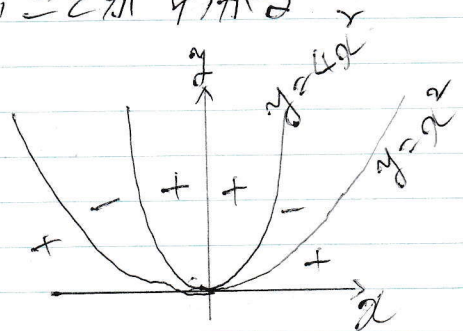 y
y=4x²
y=x²
+ +
- -
+ +
x